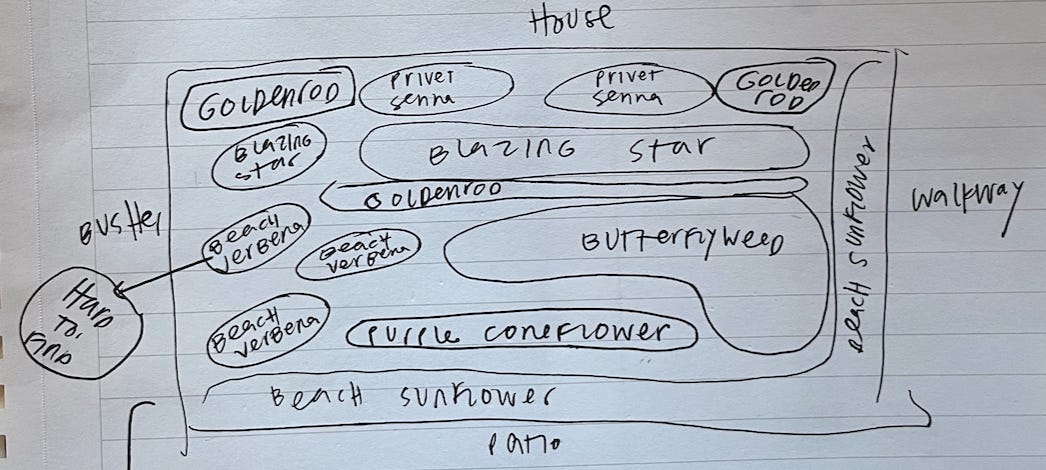 House
GOLDENROD
Privet
senna
Privet
senna
GOLDEN
ROD
BLAZING
star
BLAZING star
GOLDENROD
Beach sunflower
Walkway
Beach
verbena
Beach
verbena
Butterflyweed
Hard
to
find
Beach
verbena
Purple coneflower
Beach sunflower
Patio